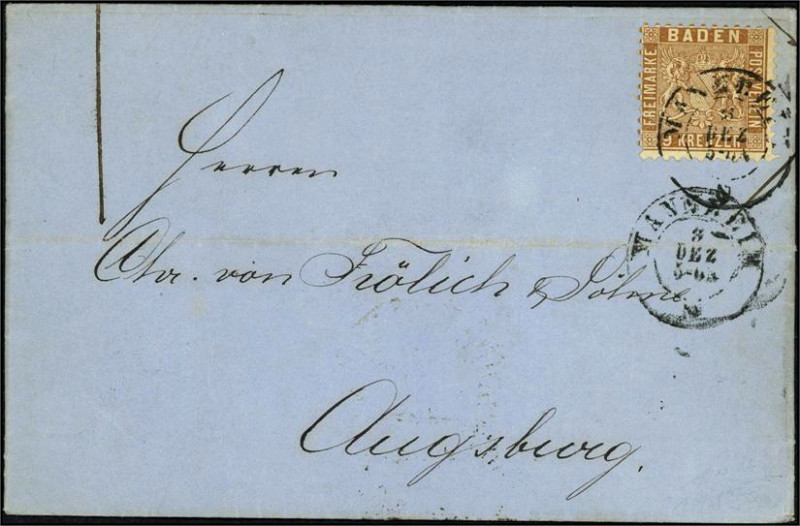 BADEN
FREIMARKE
9 KREUZER
MANNHEIM
3
DEZ
MANNHEIM
3
DEZ
Herren
Chr. von Frölich & Söhne
Augsburg.